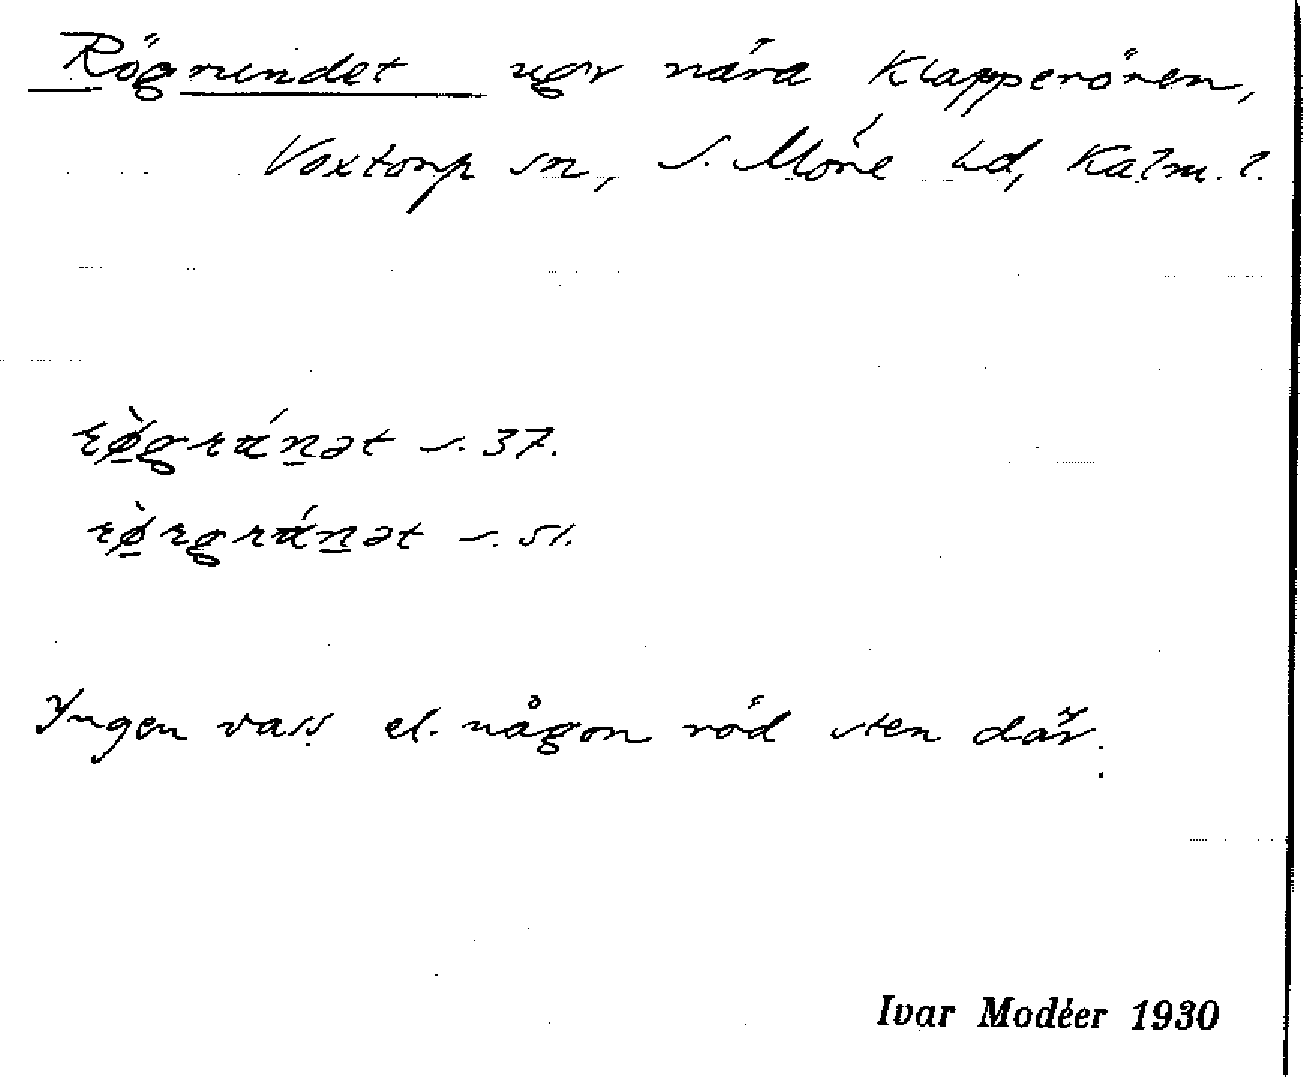 Rögrundet ugr nära Klapperören,
Voxtorp sn, S. Möre hd, Kalm. l.
s. 37.
s. 51.
Ingen vass el. någon röd sten där.
Ivar Modéer 1930